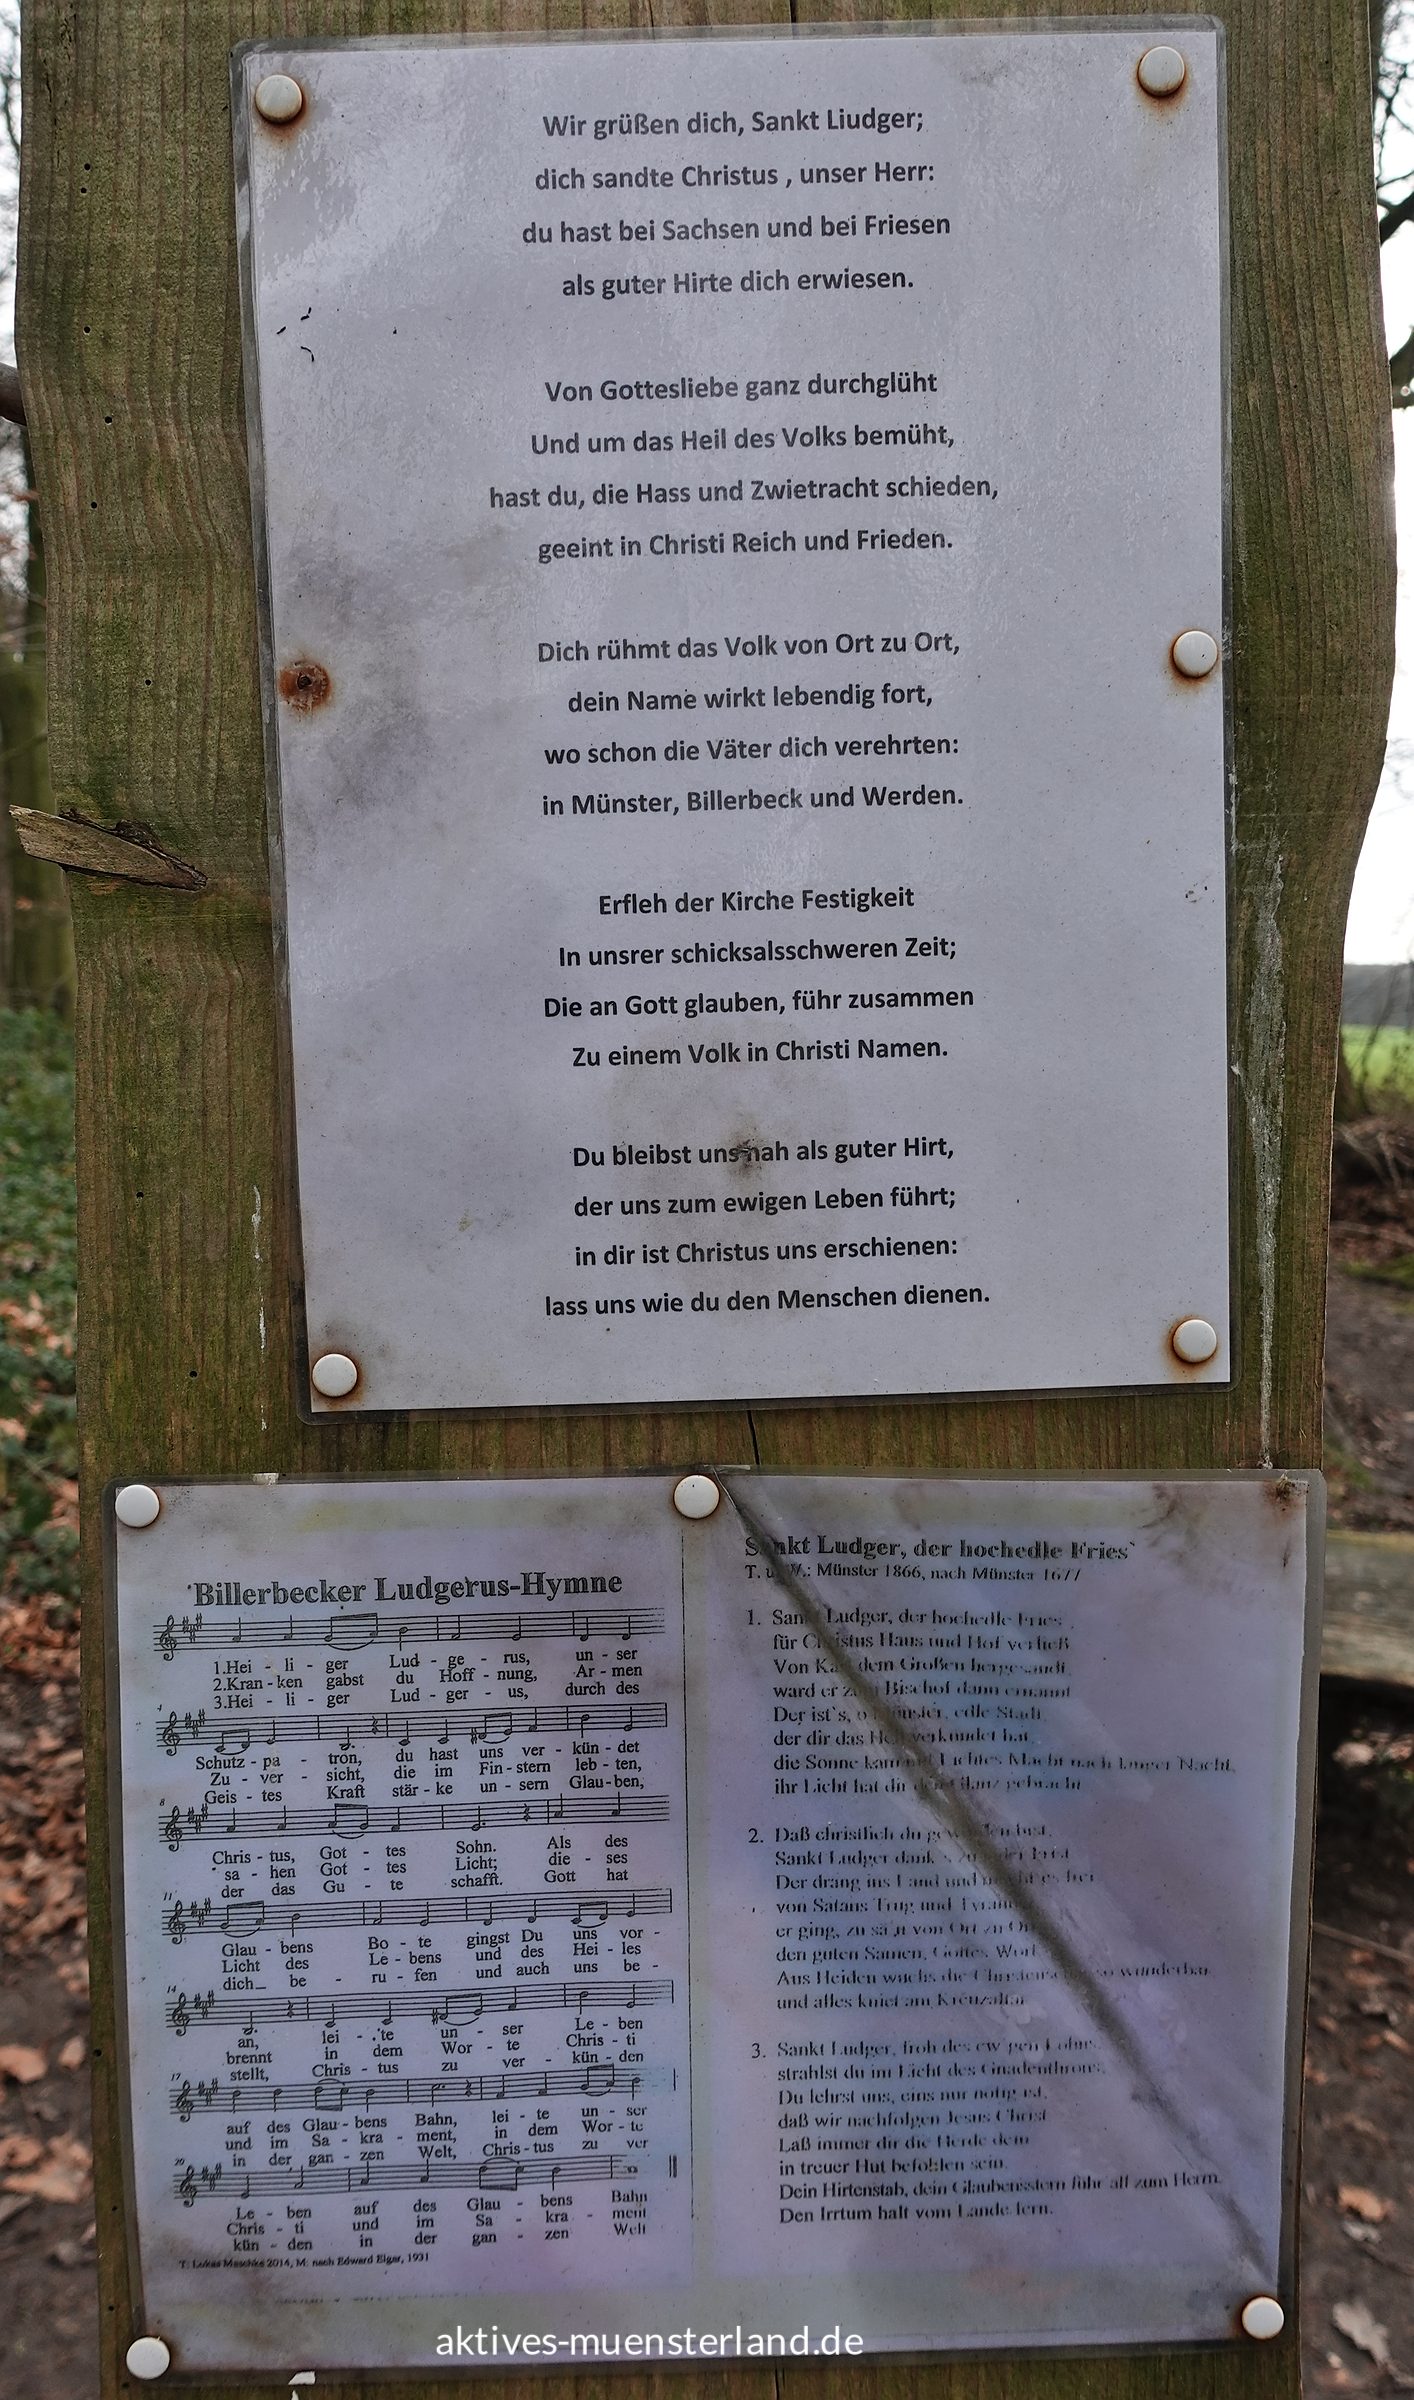 Wir grüßen dich, Sankt Liudger;
dich sandte Christus , unser Herr:
du hast bei Sachsen und bei Friesen
als guter Hirte dich erwiesen.
Von Gottesliebe ganz durchglüht
Und um das Heil des Volks bemüht,
hast du, die Hass und Zwietracht schieden,
geeint in Christi Reich und Frieden.
Dich rühmt das Volk von Ort zu Ort,
dein Name wirkt lebendig fort,
wo schon die Väter dich verehrten:
in Münster, Billerbeck und Werden.
Erfleh der Kirche Festigkeit
In unsrer schicksalsschweren Zeit;
Die an Gott glauben, führ zusammen
Zu einem Volk in Christi Namen.
Du bleibst uns nah als guter Hirt,
der uns zum ewigen Leben führt;
in dir ist Christus uns erschienen:
lass uns wie du den Menschen dienen.
Billerbecker Ludgerus-Hymne
1.Hei - li - ger Lud - ge - rus, un - ser
2.Kran - ken gabst du Hoff - nung, Ar - men
3.Hei - li - ger Lud - ger - us, durch des
4
Schutz - pa - tron, du hast uns ver - kün - det
Zu - ver - sicht, die im Fin - stern leb - ten,
Geis - tes Kraft stär - ke un - sern Glau - ben,
8
Chris - tus, Got - tes Sohn. Als des
sa - hen Got - tes Licht; die - ses
der das Gu - te schafft. Gott hat
11
Glau - bens Bo - te gingst Du uns vor -
Licht des Le - bens und des Hei - les
dich_ be - ru - fen und auch uns be -
14
an, lei - te un - ser Le - ben
brennt in dem Wor - te Chris - ti
stellt, Chris - tus zu ver - kün - den
17
auf des Glau - bens Bahn, lei - te un - ser
und im Sa - kra - ment, in dem Wor - te
in der gan - zen Welt, Chris - tus zu ver
20
Le - ben auf des Glau - bens Bahn
Chris - ti und im Sa - kra - ment
kün - den in der gan - zen Welt
T: Lukas Maschke 2014, M: nach Edward Elgar, 1931
Sankt Ludger, der hochedle Fries`
T. u. W.: Münster 1866, nach Münster 1677
1. Sankt Ludger, der hochedle Fries
für Christus Haus und Hof verließ
Von Karl dem Großen hergesandt
ward er zum Bischof dann ernannt
Der ist`s, o Münster, edle Stadt
der dir das Heil verkündet hat
die Sonne kam mit Lichtes Macht nach langer Nacht,
ihr Licht hat dir den Glanz gebracht
2. Daß christlich du geworden bist,
Sankt Ludger dank
Der drang ins Land und macht es frei
von Satans Trug und
er ging, zu sä'n von Ort zu Ort
den guten Samen, Gottes Wort
Aus Heiden wuchs die so wunderbar
und alles kniet am Kreuzaltar
3. Sankt Ludger, froh des ew'gen Lohns
strahlst du im Licht des Gnadenthrons,
Du lehrst uns, eins nur nötig ist,
daß wir nachfolgen Jesus Christ
Laß immer dir die Herde dein
in treuer Hut befohlen sein.
Dein Hirtenstab, dein Glaubensstern führ all zum Herrn.
Den Irrtum halt vom Lande fern.
aktives-muensterland.de